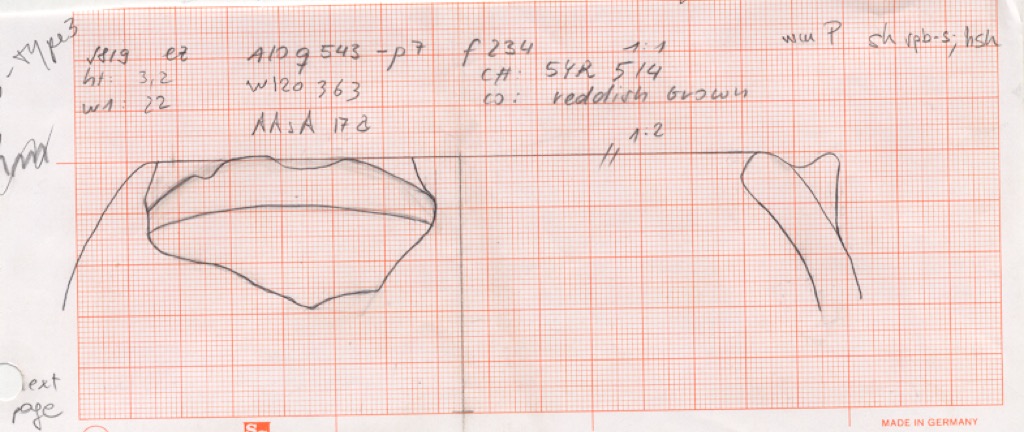 Type 3
1819 ez A10 q 543 - p7 f 234 1:1 wm P sh rpb-s; hsh
ht: 3,2 W120 363 CH: 5YR 5/4
w1: 22 AAsA 178 co: reddish brown
1:2
//
ext
page
MADE IN GERMANY